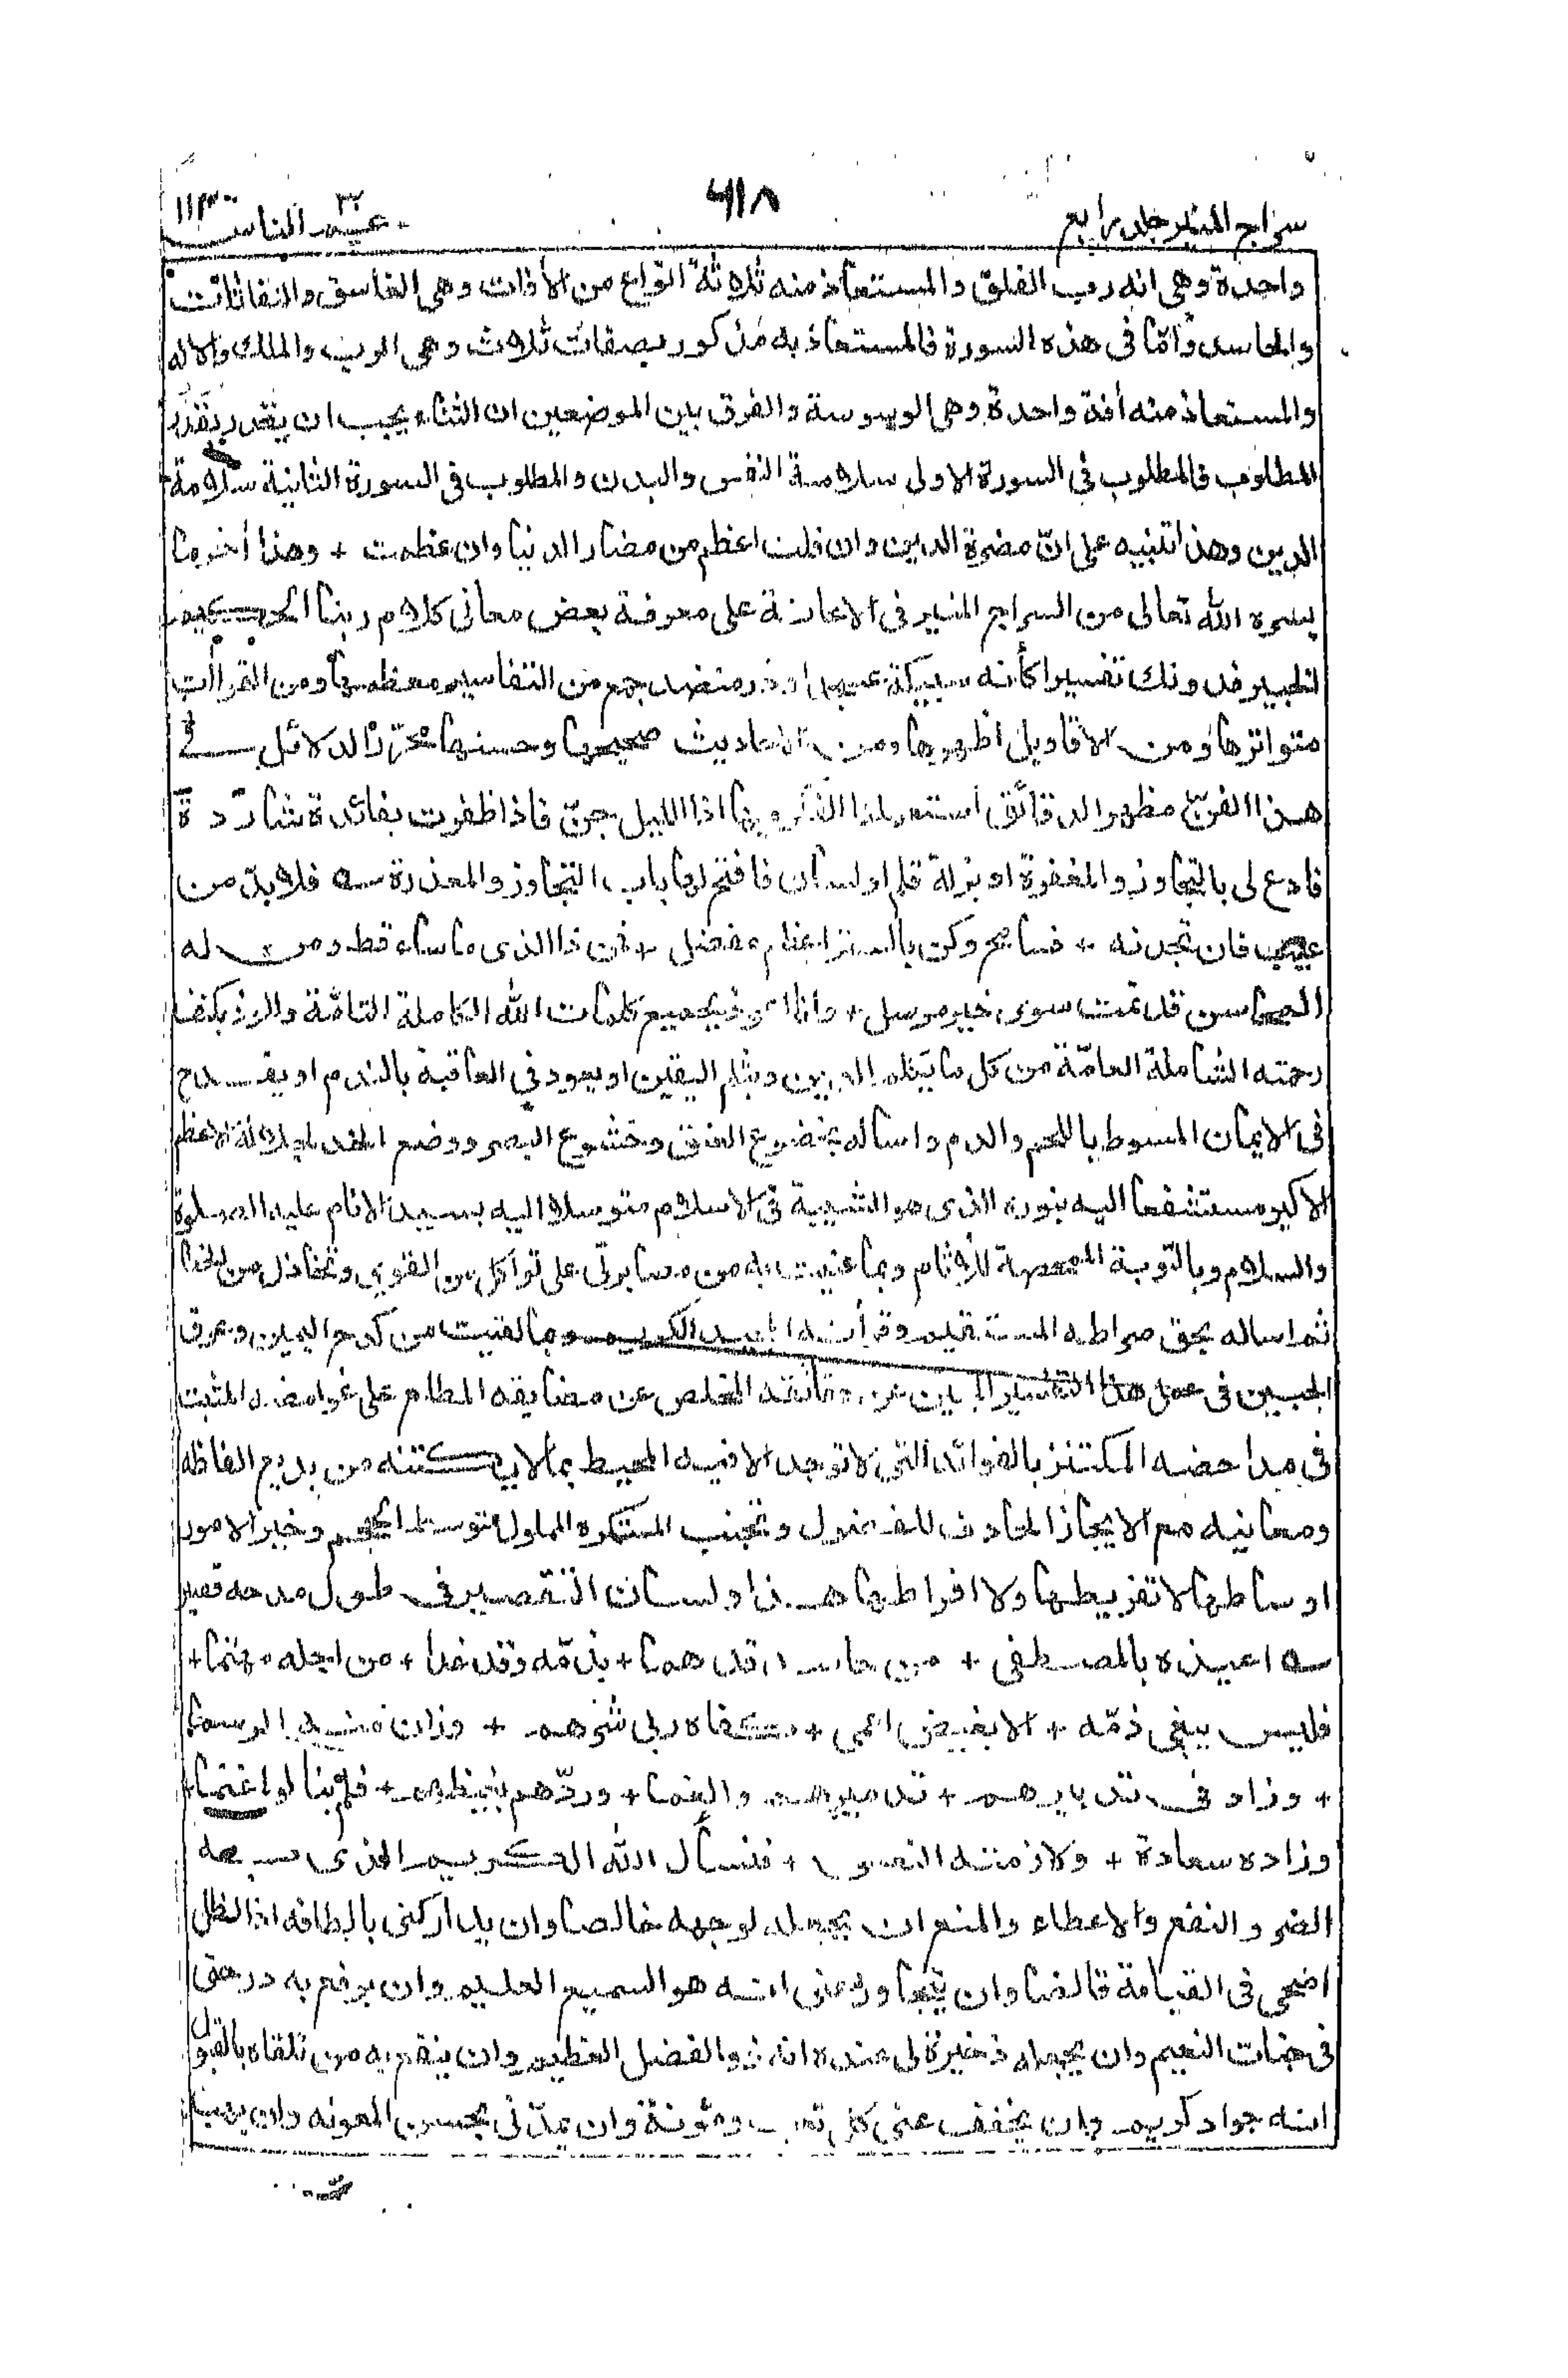 سراج المنير جلد رابع
٦١٨
عم الناس ١١٤
واحدة وهى انه رب الفلق والمستعاذ منه ثلاثة انواع من الأفات وهى الغاسق والنفاثات
والحاسد وأمّا فى هذه السورة فالمستعاذ به مذكور بصفات ثلاث وهى الرب والملك والاله
والمستعاذ منه أفة واحدة وهى الوسوسة والفرق بين الموضعين ان الثناء يجب ان يتقدر بقدر
المطلوب فالمطلوب فى السورة الاولى سلامة النفس والبدن والمطلوب فى السورة الثانية سلامة
الدين وهذا تنبيه على انّ مضرة الدين وان قلت اعظم من مضار الدنيا وان عظمت + وهذا أخر ما
يسره الله تعالى من السراج المنير فى الاعانة على معرفة بعض معانى كلام ربنا الحكيم
الخبير فدونك تفسيرا كأنه سبيكة عسجد او در منضد جمع من التفاسير معظمها ومن القراآت
متواترها ومن الاقاويل اظهرها ومن الاحاديث صحيحها وحسنها محرر الدلائل فى
هذا الفن مظهر الدقائق استعملنا الفكر فيها اذا الليل جنّ فاذا ظفرت بفائدة شاردة
فادع لى بالتجاوز والمغفرة او بزلة قلم او لسان فافتح لها باب التجاوز والمعذرة سه فلا بدّ من
عيب فان تجدنه + فسامح وكن بالستر اعظم مفضل + فمن ذا الذى ما ساء قط ومن له
المحاسن قد تمت سوى خير مرسل + وانا اعوذ بجميع كلمات الله الكاملة التامّة والوذ بكنف
رحمته الشاملة العامّة من كل ما يثلم الدين ويثلم اليقين او يعود فى العاقبة بالندم او يقدح
فى الايمان المسوط باللحم والدم واساله بخضوع العنق وخشوع البصر ووضع الخد لجلالة الاعظم
الاكبر مستشفعا اليه بنوره الذى هو الشيبة فى الاسلام متوسلا اليه بسيد الانام عليه الصلوة
والسلام وبالتوبة الممحصة للأثام وبما عنيت به من مصابرتى على تواكل من القوى وتخاذل من الخطا
ثم اساله بحق صراطه المستقيم وقرأنه المجيد الكريم وبما لقيت من كدح اليمين وعرق
الجبين فى عمل هذا التفسير المبين عن حقائقه المخلص عن مضايقه المطلع على غوامضه المثبت
فى مداحضه المكتنز بالفوائد التى لا توجد الا فيه المحيط بما لا يكتنه من بديع الفاظه
ومعانيه مع الايجاز الحاذف للفضول وتجنب المستكره المملول متوسط الحجم وخير الامور
اوساطها لا تفريطها ولا افراطها هذا ولسان التقصير فى طول مدحه قصير
سه اعيذه بالمصطفى + من حاسد قد هما + بذمّه وقد غدا + من اجله مهتما +
فليس يبغى ذمّه + الا بغيض اعمى + كفاه ربى شرهم + وزان منه الوسما
+ وزاد فى تدبيرهم + تدميرهم والغما + وردّهم بغيظهم + فلم ينالوا غنما +
وزاده سعادة + ولازمته النعمى + فنسأل الله الكريم الذى بيده
الضر والنفع والاعطاء والمنع ان يجعله لوجهه خالصا وان يداركنى بالطافه اذا الظل
اضحى فى القيامة قالصا وان يتجاوز عنى انه هو السميع العليم وان يرفع به درجتى
فى جنات النعيم وان يجعله ذخيرة لى عنده انه ذو الفضل العظيم وان ينفع به من تلقاه بالقبول
انه جواد كريم وان يخفف عنى كل تعب ومؤنة وان يمدّنى بحسن المعونه وان يهب